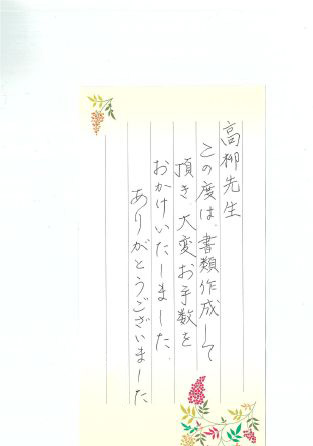 高柳先生
この度は、書類作成して
頂き、大変お手数を
おかけいたしました。
ありがとうございました